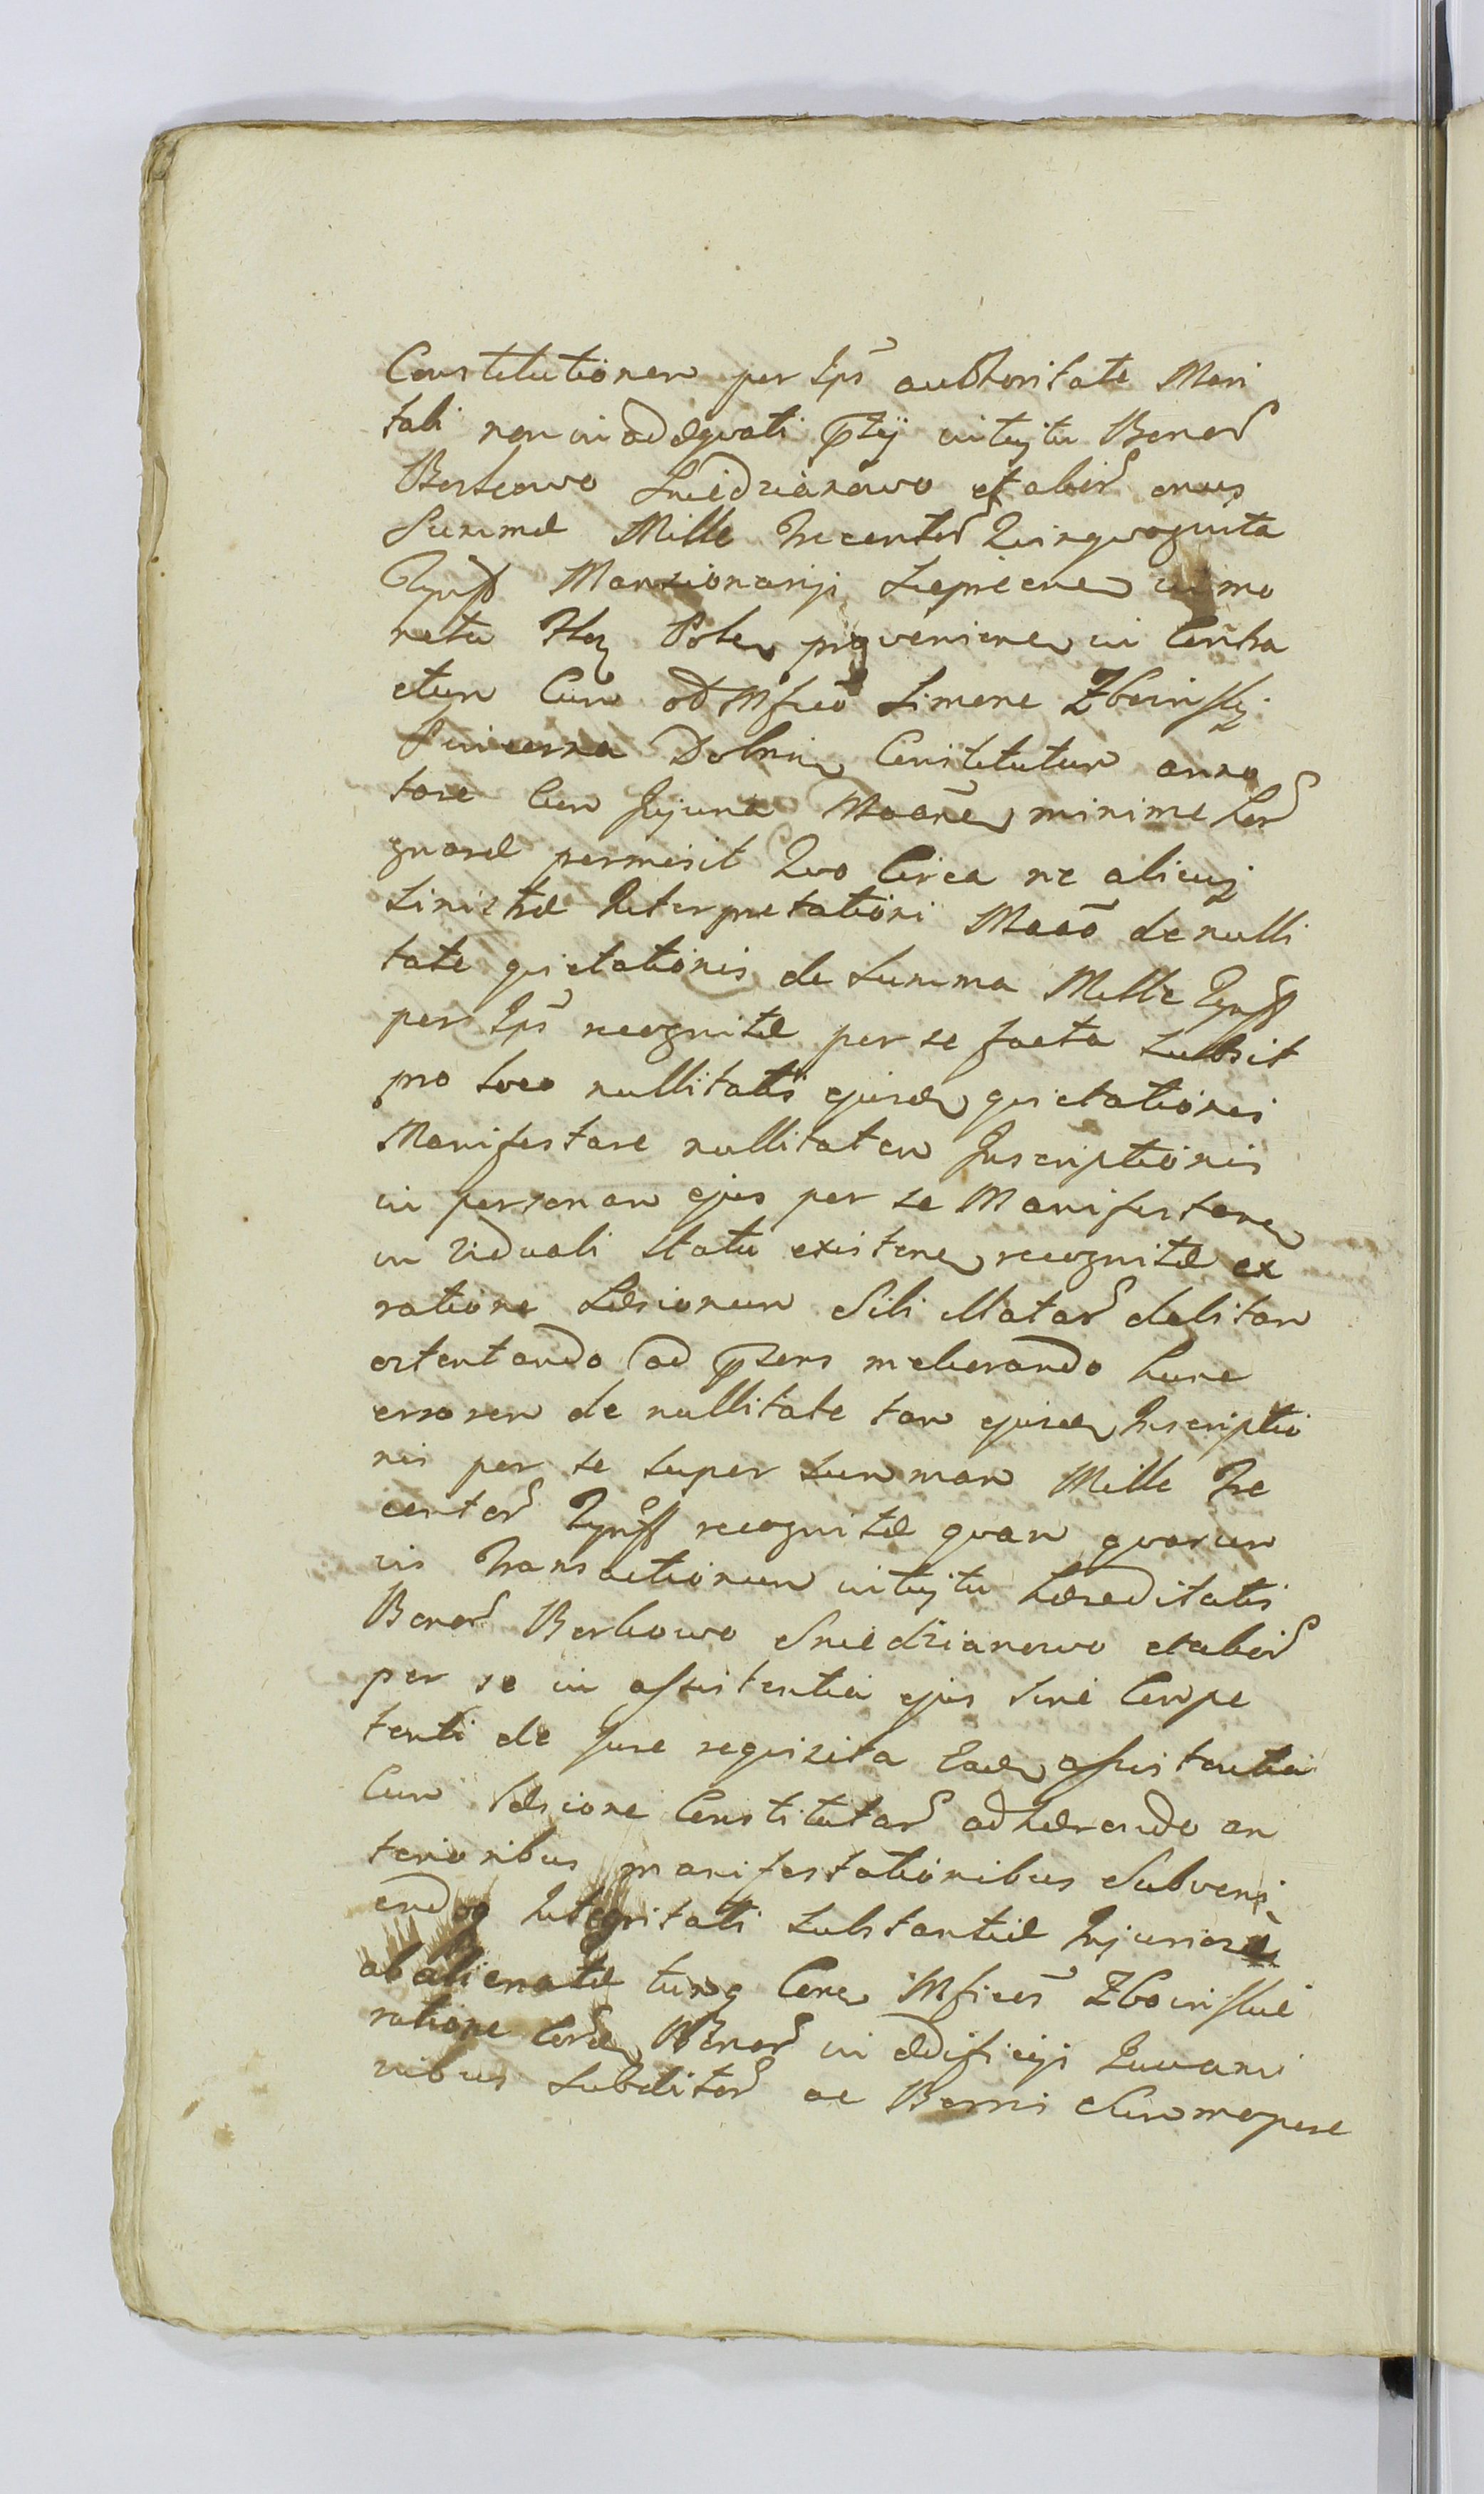 Constitutionem per Ips̃ authoritate Mari
tali non inadæquati p̃tij intuitu Bonor̃
Borkowo Sniedzianowo et alior̃ onus
Summæ Mille Trecentor̃ Quinquaginta
Tynff Mansionarijs Lipnicen in mo
neta Regni Polon proveniene in Contra
ctum Cum od Mfico Simone Zboinskj
Pincerna Dobrin Constitutum anno
tare Cum Jejuna Maãne minime
gnare permisit Quo Circa ne alicuj
Sinistræ Interpretationi Macõ de nulli
tate quietationis de Summa Mille Tynff
per Ips̃ recognitæ per se facta Subsit
pro loco nullitatis ejusd quietationis
Manifestare nullitatem Inscriptionis
in personam ejus per se Manifestane
in viduali statu existene recognitæ ex
ratione Læsionum Sibi illatar̃ debitam
ostentando ad p̃sens meliorando hunc
errorem de nullitate tam ejusd Inscriptio
nis per se super Summam Mille Tre
centor̃ Tynff recognitæ quam quarum
vis Transactionum intuitu hæreditatis
Bonor̃ Borkowo Sniedzianowo et alior̃
per se in assistentia ejus sine Compe
tenti de Jure requisita Ead assistentia
Cum Læsione Constitutar̃ adhærendo an
terioribus manifestationibus Subveni
endoq Integritati Substantiæ Injuriosè
abalienatæ tunq Cone Mficũ Zboinskie
ratione Eord Bonor̃ in ædificijs Juvami
nibus Subditor̃ ac Bonis Summopere